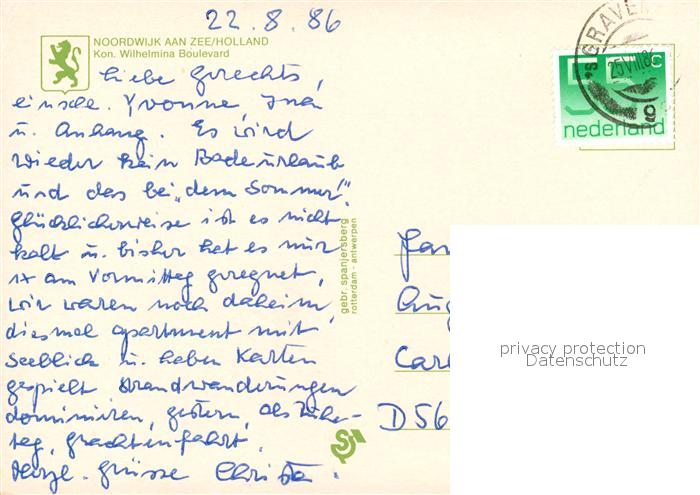 22.8.86
NOORDWIJK AAN ZEE/HOLLAND
Kon. Wilhelmina Boulevard
Liebe Gerechts,
einschl. Yvonne,
u. Anhang. Es wird
wieder kein Badeurlaub
und das bei "dem Sommer".
Glücklicherweise ist es nicht
kalt u. bisher hat es nur
1x am Vormittag geregnet,
wir waren noch daheim,
diesmal apartment mit
Seeblick u. haben Karten
gespielt Strandwanderungen
dominieren, gestern, als Ruhe-
tag, Grachtenfahrt.
Herzl. Grüsse Christa.
gebr. spanjersberg
rotterdam - antwerpen
'S GRAVEN
25 VIII 86
55 c
nederland
Fam
Aug
Carl
D 56
privacy protection
Datenschutz